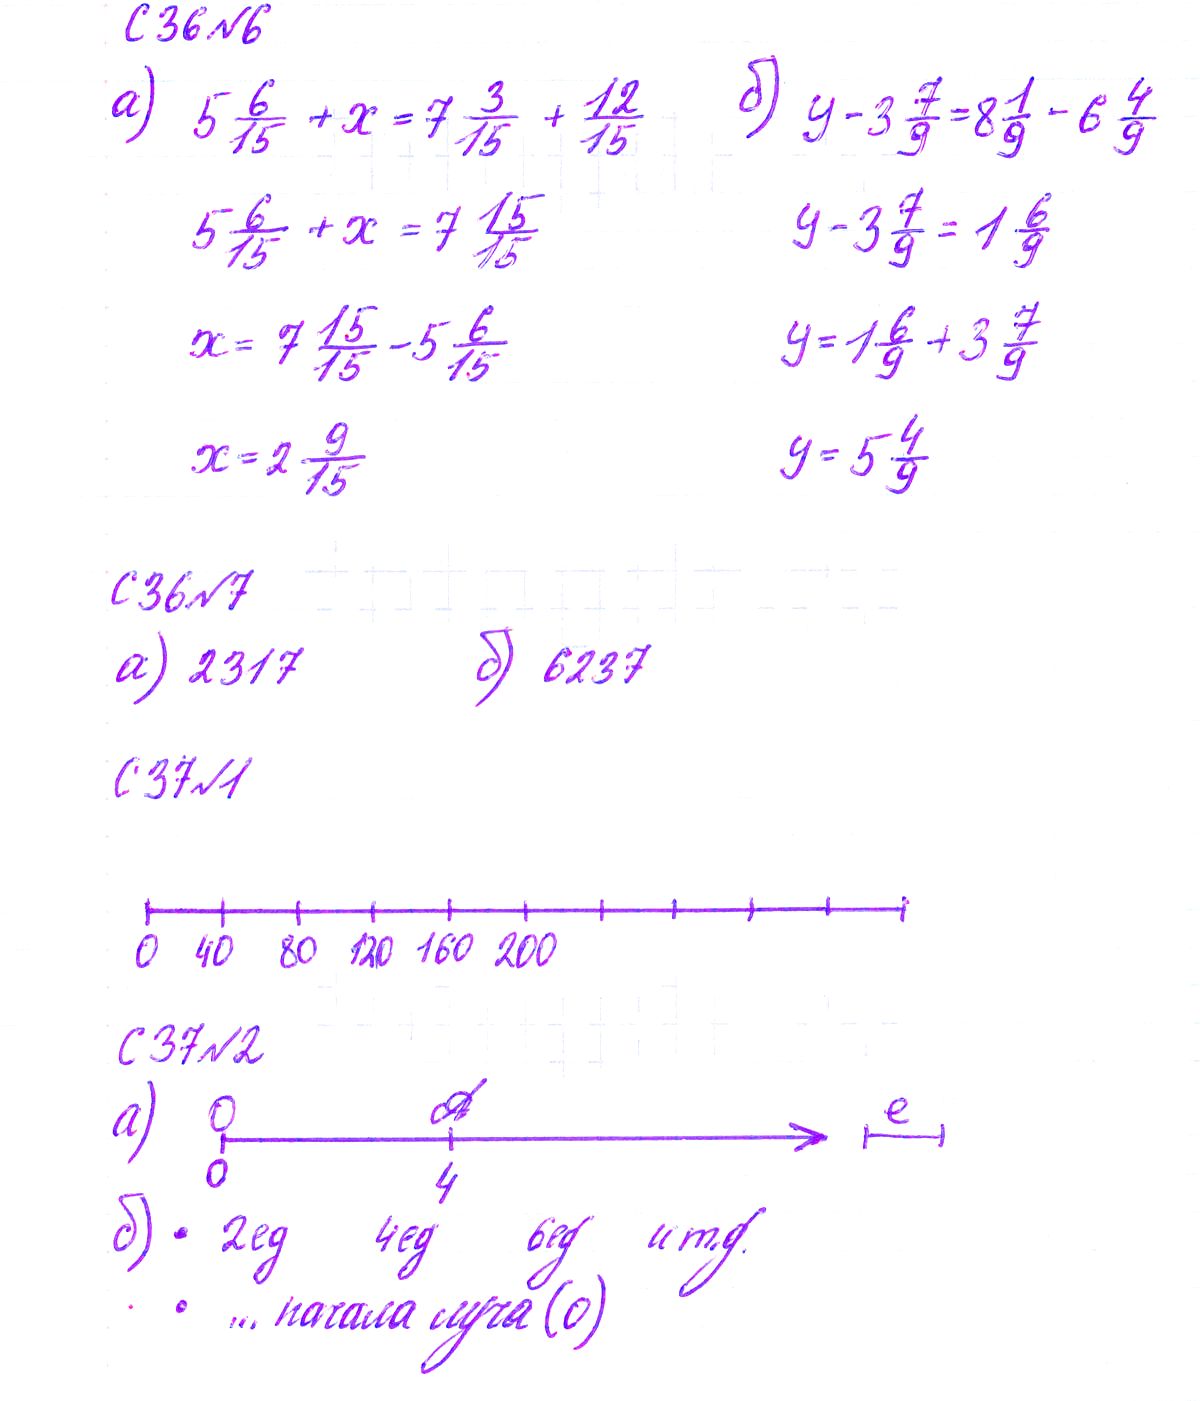 С36№6
а) 5 6/15 + x = 7 3/15 + 12/15 б) y - 3 7/9 = 8 1/9 - 6 4/9
5 6/15 + x = 7 15/15 y - 3 7/9 = 1 6/9
x = 7 15/15 - 5 6/15 y = 1 6/9 + 3 7/9
x = 2 9/15 y = 5 4/9
С36№7
а) 2317 б) 6237
С37№1
0 40 80 120 160 200
С37№2
а) O A e
0 4
б) • 2ед 4ед 6ед и т.д.
• ... начала луча (0)